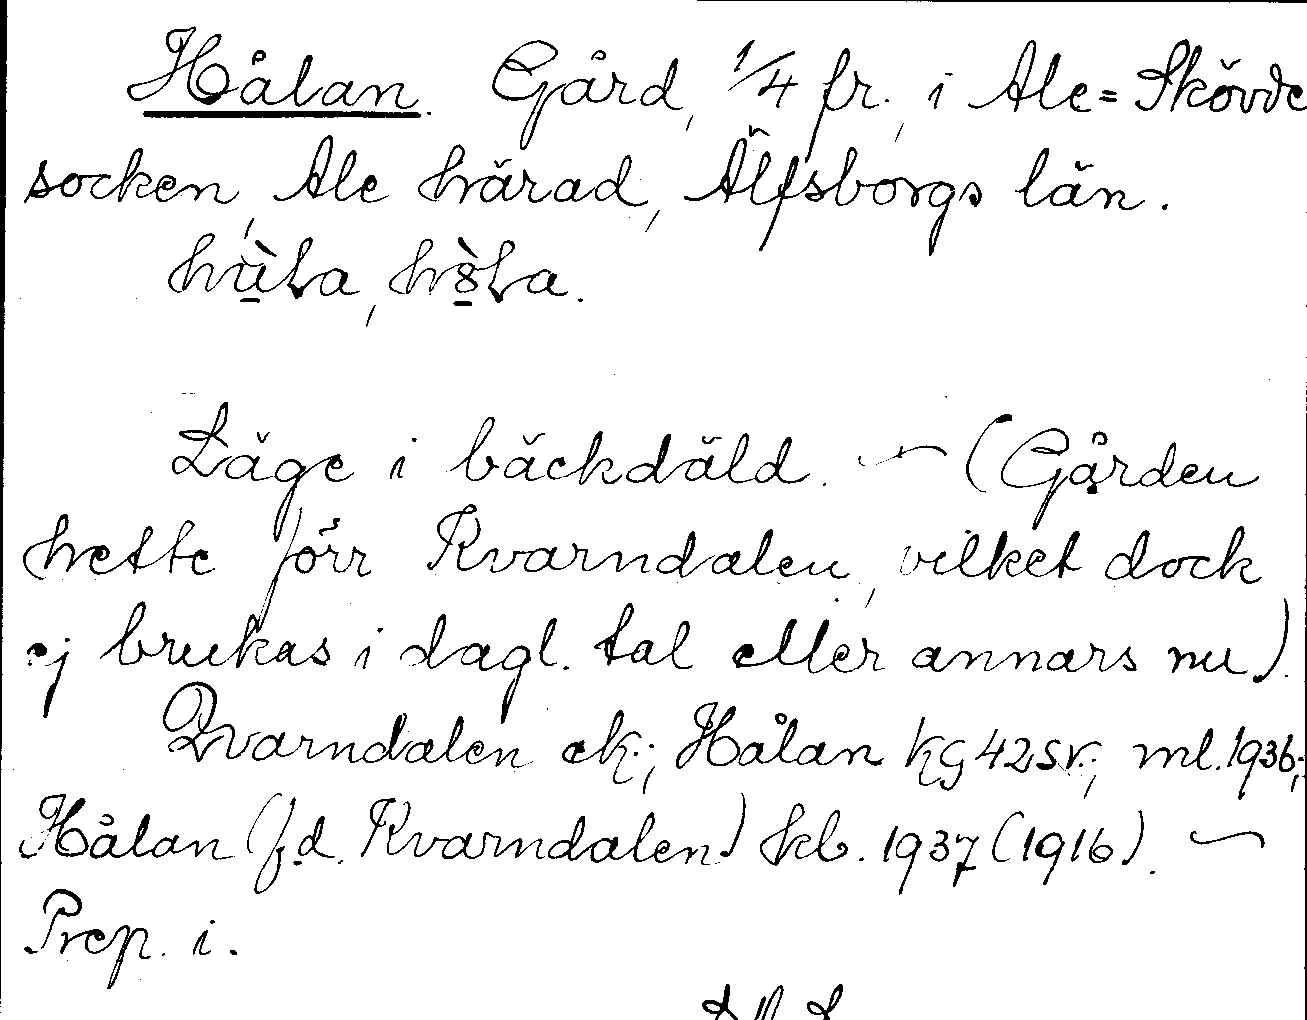 Hålan. Gård, 1/4 fr., i Ale=Skövde
socken, Ale härad, Älfsborgs län.
Läge i bäckdäld. — (Gården
hette förr Kvarndalen, vilket dock
ej brukas i dagl. tal eller annars nu).
Qvarndalen ek.; Hålan kg 42 sv.; ml. 1936;
Hålan (f.d. Kvarndalen) skb. 1937 (1916). —
Prep. i.